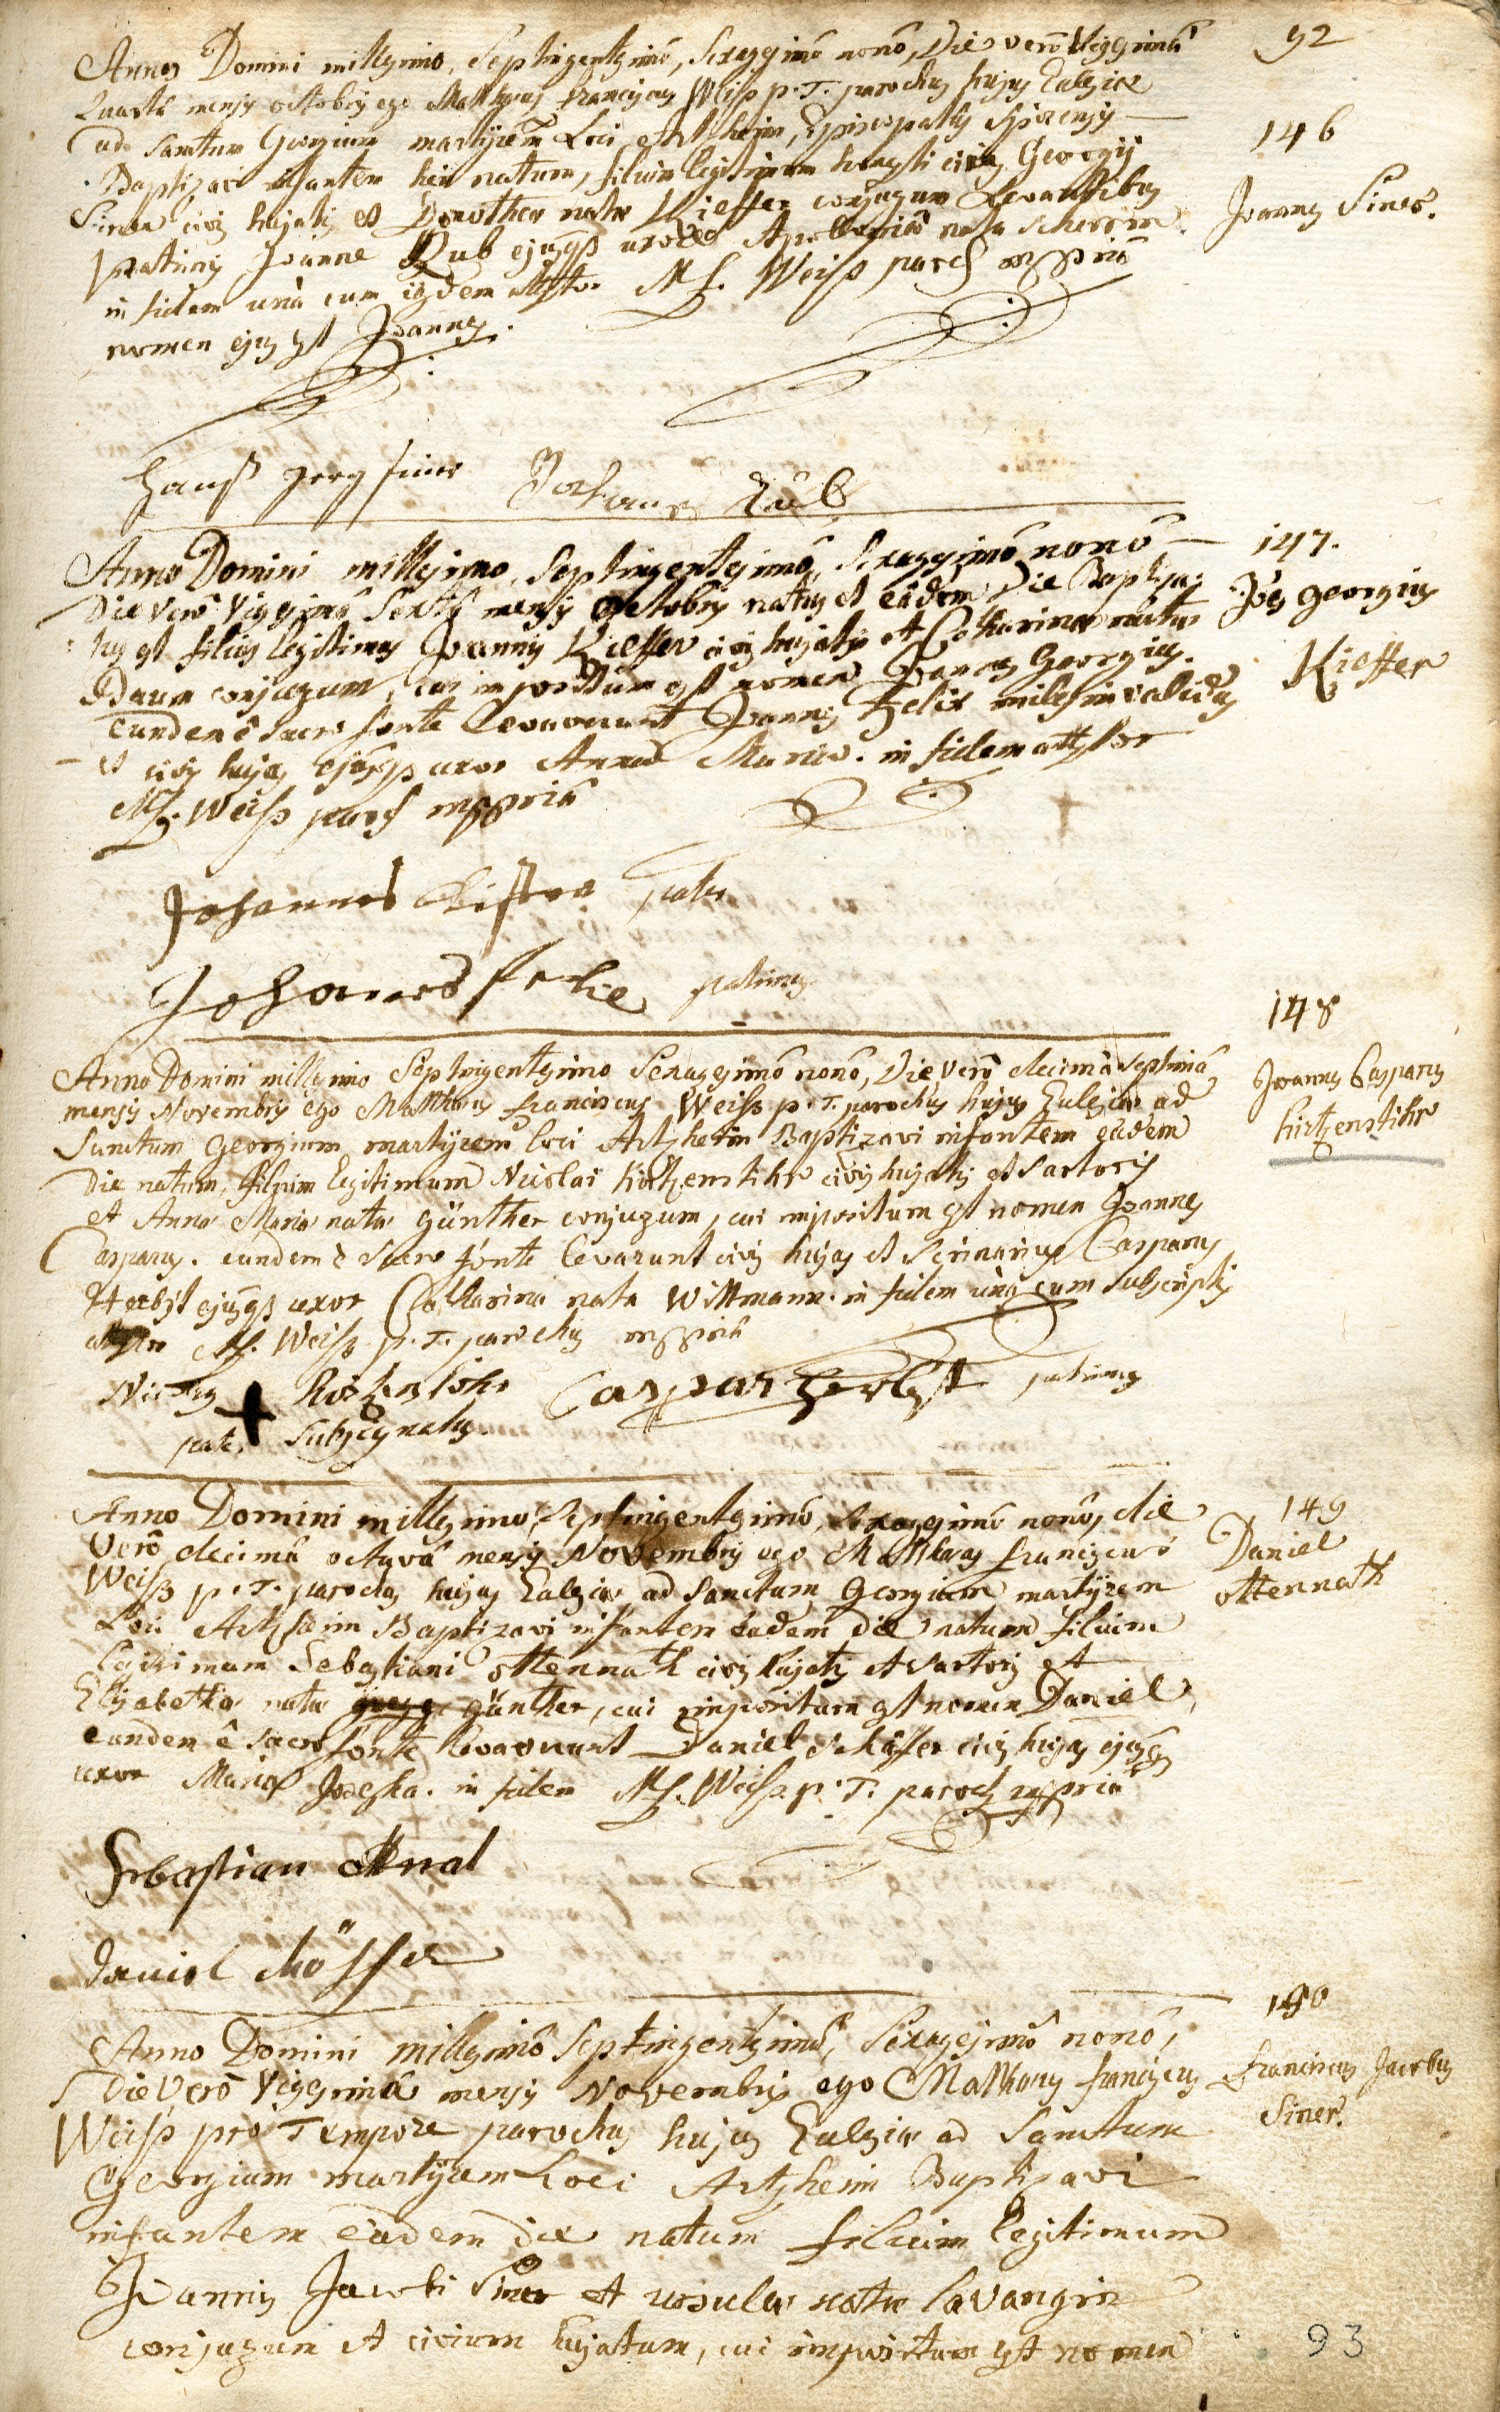 92
Anno Domini millesimo, Septingentesimô, Sexagesimô nonô, Die verô Vigesimâ
quartâ mensis octobris ego Matthæus franciscus Weiss p. T. parochus hujus Eclesiæ
ad Sanctum Georgium martÿrem Loci Artzheim, Episcopatus Spirensis
Baptizavi infantem heri natum, filium legitimum honesti civis Georgij
Siner civis hujatis et Dorotheæ natæ Kieffer conjugum Levantibus
patrinis Joanne Rub ejusq3 uxore Apolloniâ nata scherrin
in fidem unà cum iisdem attestor. Mf. Weiss paroch mppriâ
nomen ejus est Joannes.
146
Joannes Siner.
Hanß Jerg siner Johannes Rub
Anno Domini millesimo, Septingentesimô, Sexagesimô nonô
147.
Die verô Vigesimâ Sextâ mensis octobris natus et eâdem Die Baptiza-
tus est filius legitimus Joannis Kieffer civis hujatis et Catharinæ natæ
Baum conjugum, cui impositum est nomen Joannes Georgius.
eundem è sacro fonte levaverunt Joannes Felix miles invalidus
et civis hujas ejusq3 uxor Anna Maria. in fidem attestor
Mf. Weiss paroch mppriâ
Joês georgius
Kieffer
Johannes Kiffer pater
Johannes felix patrinus
148
Anno Domini millesimo Septingentesimo Sexagesimô nonô, Die verô decimâ septimâ
mensis Novembris ego Matthæus franciscus Weiss p. T. parochus hujus Eclesiæ ad
Sanctum Georgium martÿrem loci Artzheim Baptizavi infantem eâdem
die natum, filium legitimum Nicolai Kirtzenstihr civis hujatis et Sartoris
et Annæ Mariæ natæ günther conjugum, cui impositum est nomen Joannes
Casparus. eundem è sacro fonte levarunt civis hujas et Scrinarius Casparus
Herbst ejusq3 uxor Catharina nata Wittmann. in fidem unà cum subscriptis
attestor Mf. Weiss p. T. parochus mppriâ
Joannes Casparus
kirtzenstihr
Nicolaus + Kirtzenstihr Caspar Herbst patrinus
pater subsignatus.
Anno Domini millesimo, Septingentesimô, Sexagesimô nonô, die
verô decimâ octavâ mensis Novembris ego Matthæus franciscus
Weiss p. T. parochus hujus Eclesiæ ad Sanctum Georgium martÿrem
Loci Artzheim Baptizavi infantem eâdem die natum filium
legitimum Sebastiani ottennath civis hujatis et sartoris et
Elisabethæ natæ günther, cui impositum est nomen Daniel
eundem ê sacro fonte levaverunt Daniel schäffer civis hujas ejusq3
uxor Maria Josepha. in fidem Mf. Weiss p. T. paroch mppriâ
149
Daniel
ottennath
Sebastian
Daniel
150
Anno Domini millesimô Septingentesimô, Sexagesimô nonô,
Die Verô Vigesimâ mensis Novembris ego Matthæus franciscus
Weiss pro Tempore parochus hujus Eclesiæ ad Sanctum
Georgium martÿrem Loci Artzheim Baptizavi
infantem eâdem die natum filium legitimum
Joannis Jacobi Siner et ursulæ natæ Lavangin
conjugum et civium hujatum, cui impositum est nomen
franciscus Jacobus
Siner.
93